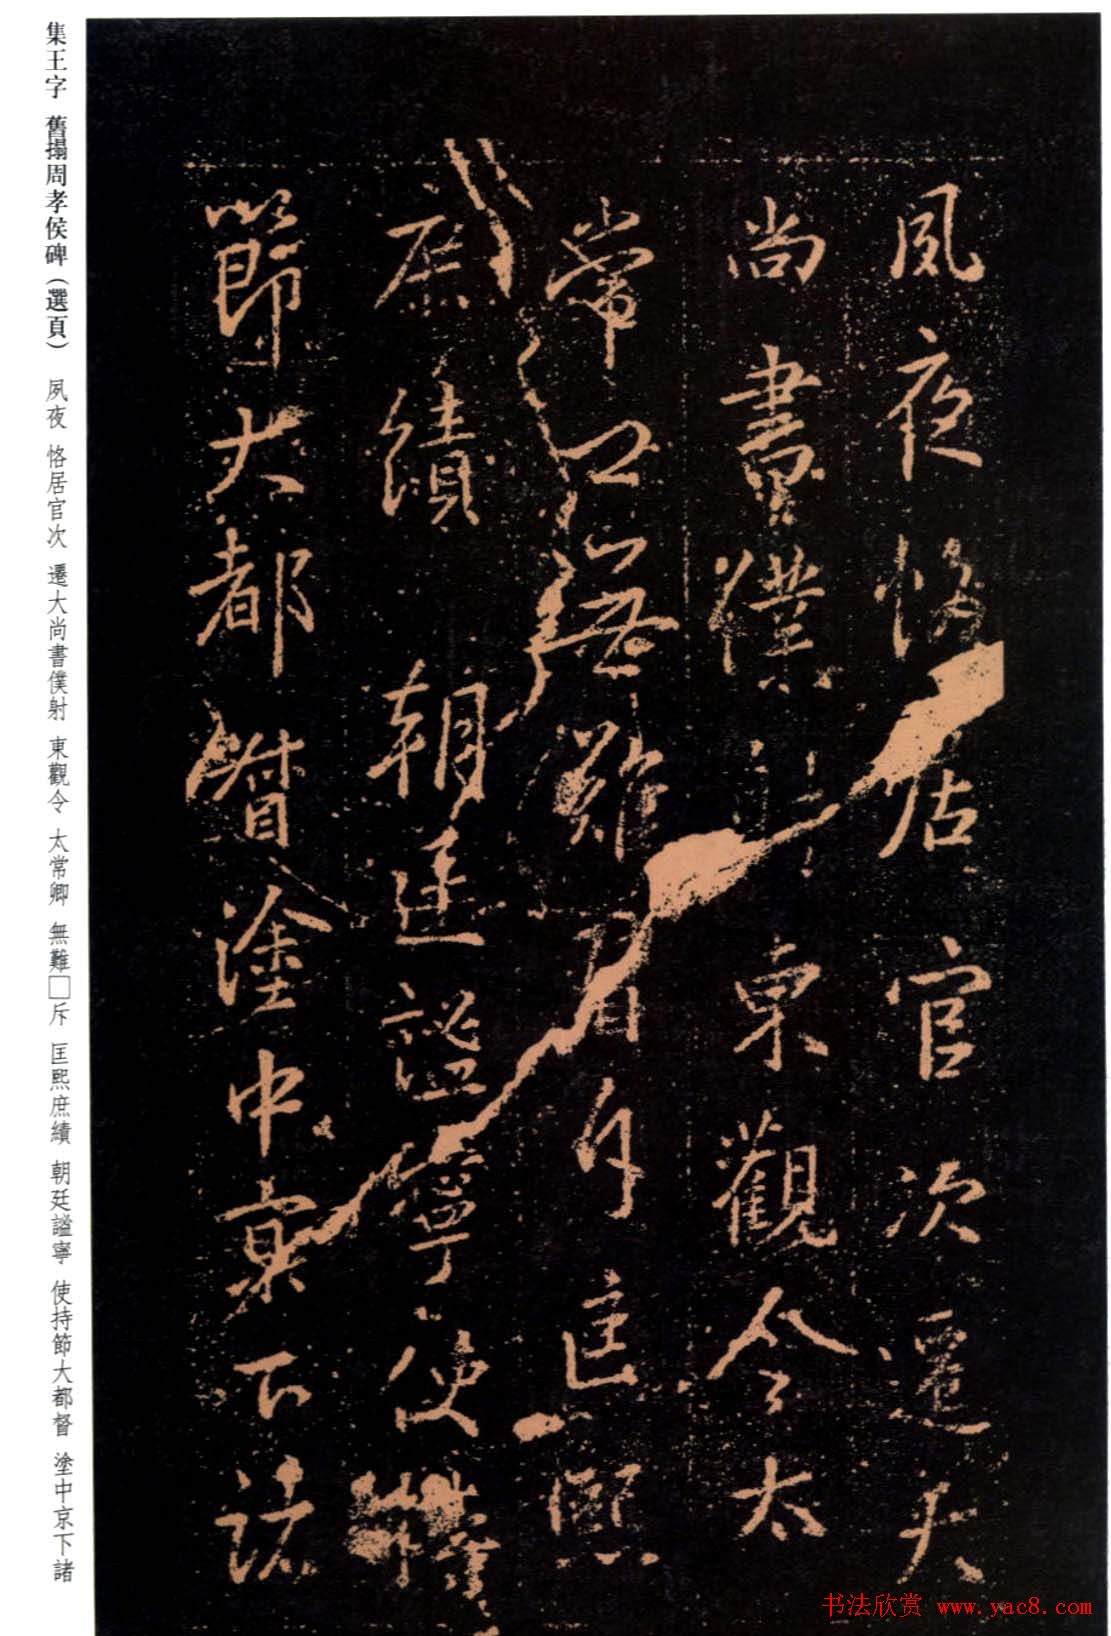 夙夜恪居官次遷大
尚書僕東觀令太
常卿無難斥匡熙
庶績 朝廷謐寧使持
節大都督塗中京下諸
集王字 舊搨周孝侯碑（選頁） 夙夜 恪居官次 遷大尚書僕射 東觀令 太常卿 無難□斥 匡熙庶績 朝廷謐寧 使持節大都督 塗中京下諸
书法欣赏 www.yac8.com